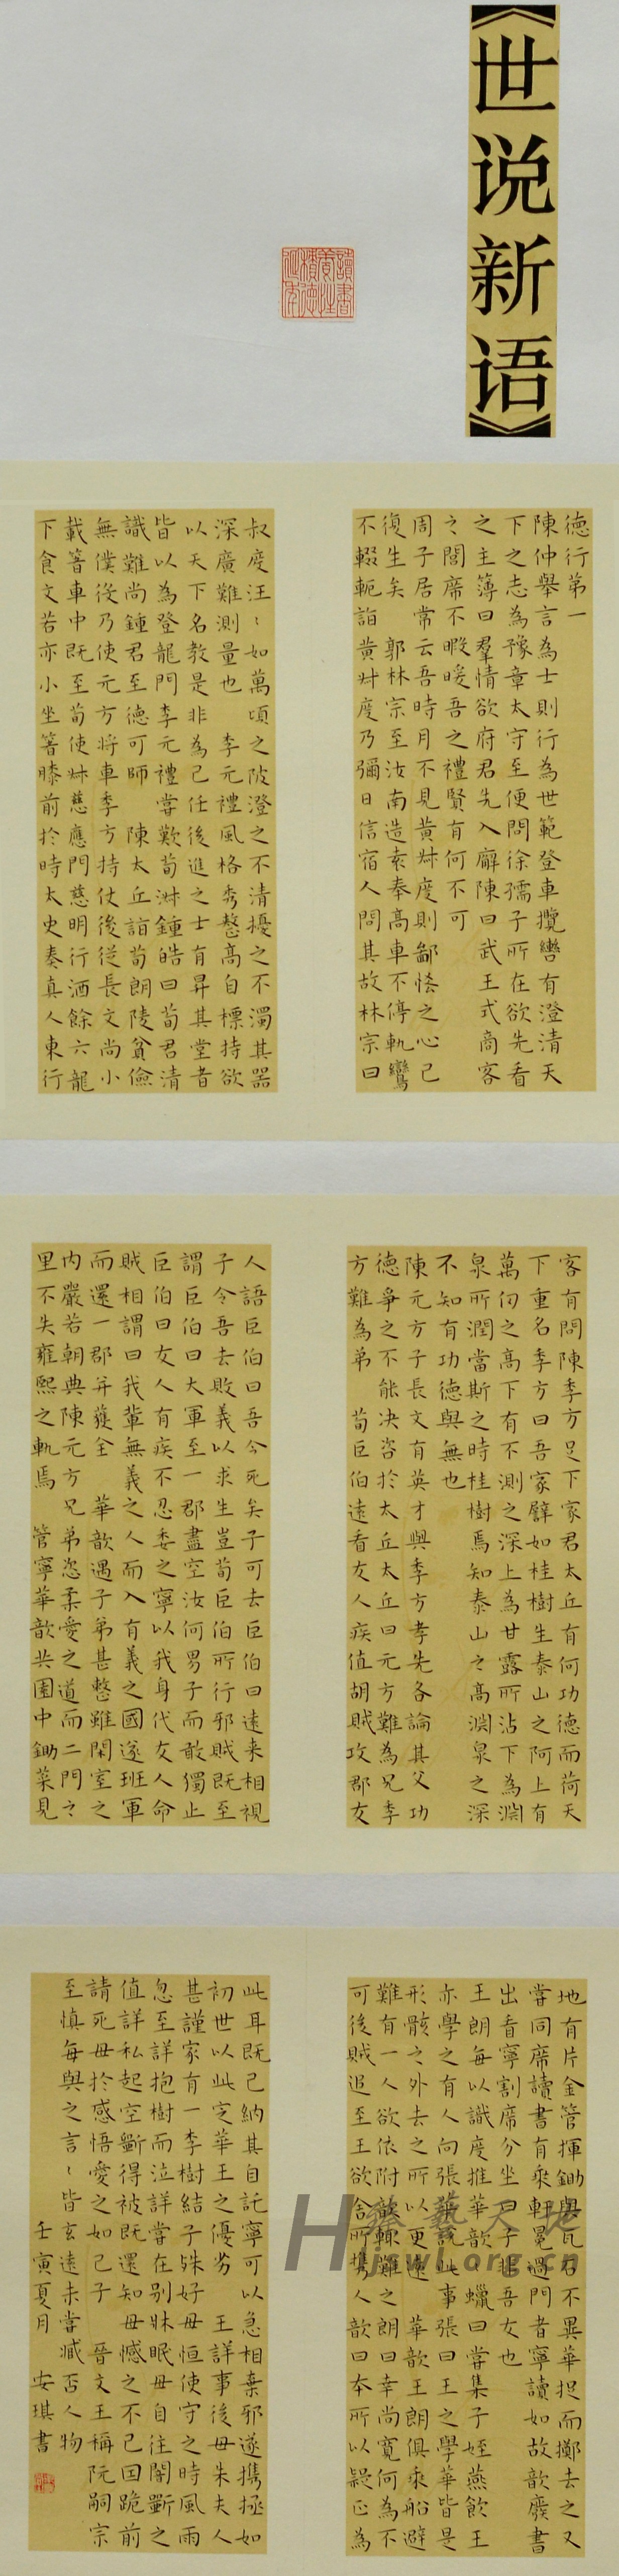 《世说新语》
讀書養性積德延年
德行第一
陳仲舉言為士則行為世範登車攬轡有澄清天
下之志為豫章太守至便問徐孺子所在欲先看
之主簿曰羣情欲府君先入廨陳曰武王式商客
之閭席不暇暖吾之禮賢有何不可
周子居常云吾時月不見黃叔度則鄙悋之心已
復生矣 郭林宗至汝南造袁奉高車不停軌鸞
不輟軛詣黃叔度乃彌日信宿人問其故林宗曰
叔度汪〻如萬頃之陂澄之不清擾之不濁其器
深廣難測量也 李元禮風格秀整高自標持欲
以天下名教是非為己任後進之士有昇其堂者
皆以為登龍門李元禮嘗歎荀淑鍾皓曰荀君清
識難尚鍾君至德可師 陳太丘詣荀朗陵貧儉
無僕役乃使元方將車季方持仗後從長文尚小
載箸車中既至荀使叔慈應門慈明行酒餘六龍
下食文若亦小坐箸膝前於時太史奏真人東行
客有問陳季方足下家君太丘有何功德而荷天
下重名季方曰吾家譬如桂樹生泰山之阿上有
萬仞之高下有不測之深上為甘露所沾下為淵
泉所潤當斯之時桂樹焉知泰山之高淵泉之深
不知有功德與無也
陳元方子長文有英才與季方孝先各論其父功
德爭之不能決咨於太丘太丘曰元方難為兄季
方難為弟 荀巨伯遠看友人疾值胡賊攻郡友
人語巨伯曰吾今死矣子可去巨伯曰遠来相視
子令吾去敗義以求生豈荀巨伯所行邪賊既至
謂巨伯曰大軍至一郡盡空汝何男子而敢獨止
巨伯曰友人有疾不忍委之寧以我身代友人命
賊相謂曰我輩無義之人而入有義之國遂班軍
而還一郡并獲全 華歆遇子弟甚整雖閑室之
内嚴若朝典陳元方兄弟恣柔愛之道而二門之
里不失雍熙之軌焉 管寧華歆共園中鋤菜見
地有片金管揮鋤與瓦石不異華捉而擲去之又
嘗同席讀書有乘軒冕過門者寧讀如故歆廢書
出看寧割席分坐曰子非吾友也
王朗每以識度推華歆蠟曰嘗集子姪燕飲王
亦學之有人向張華說此事張曰王之學華皆是
形骸之外去之所以更遠 華歆王朗俱乘船避
難有一人欲依附歆輒難之朗曰幸尚寬何為不
可後賊追至王欲舍所攜人歆曰本所以疑正為
此耳既已納其自託寧可以急相棄邪遂攜拯如
初世以此定華王之優劣 王詳事後母朱夫人
甚謹家有一李樹結子殊好母恒使守之時風雨
忽至詳抱樹而泣詳嘗在别牀眠母自往闇斫之
值詳私起空斫得被既還知母憾之不已因跪前
請死母於感悟愛之如己子 晉文王稱阮嗣宗
至慎每與之言〻皆玄遠未嘗臧否人物
壬寅夏月 安琪書
Hjswl.org.cn